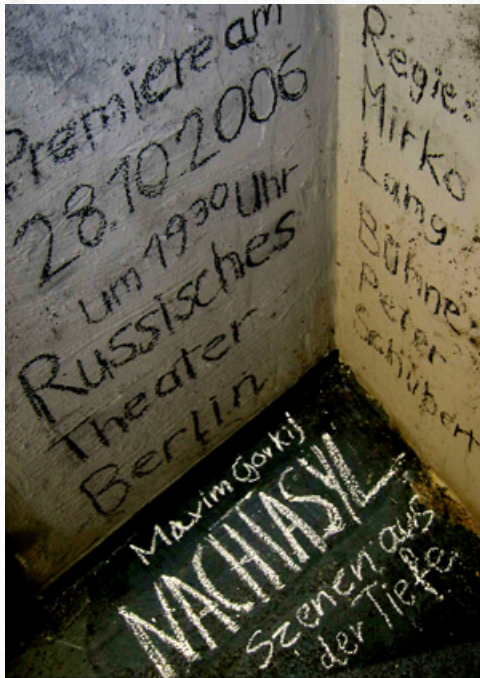 Premiere am
28.10.2006
um 19 30 Uhr
Russisches
Theater
Berlin
Regie:
Mirko
Lang
Bühne:
Peter
Schubert
Maxim Gorkij
NACHTASYL
Szenen aus
der Tiefe